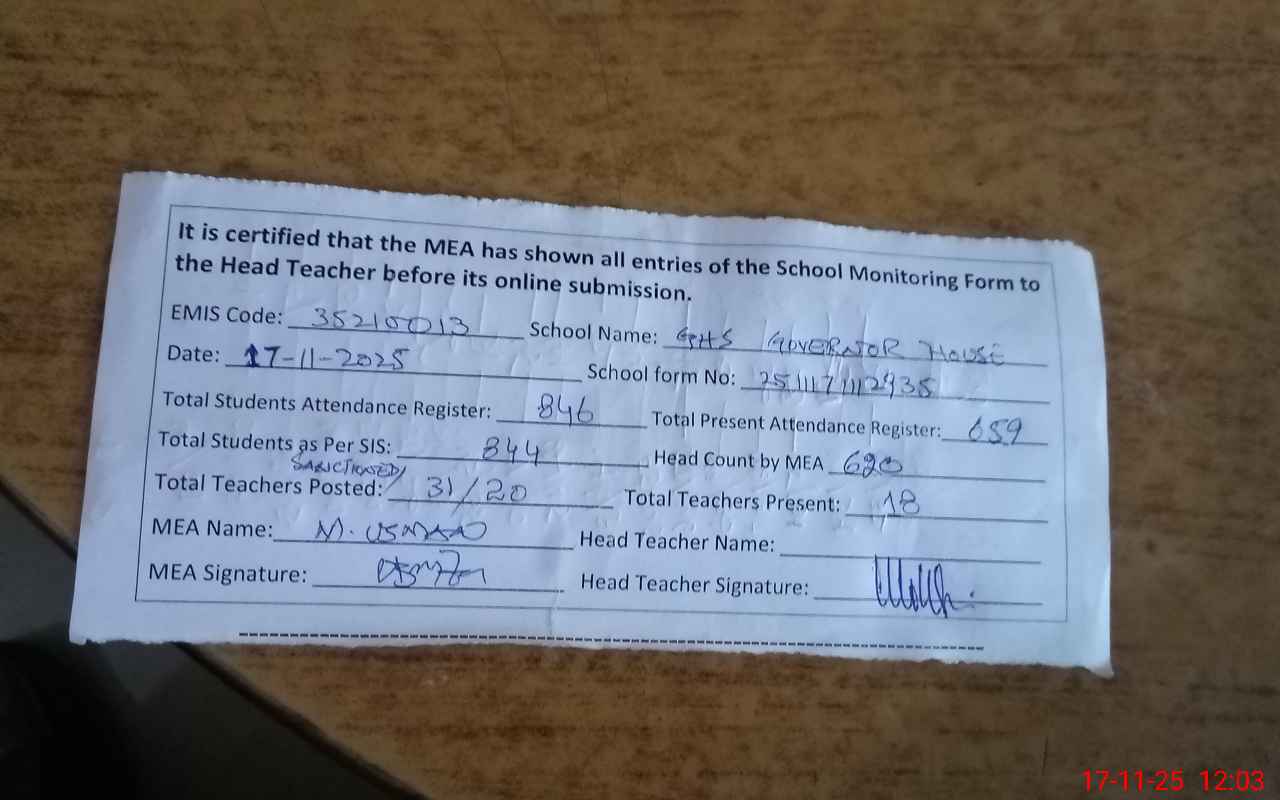 It is certified that the MEA has shown all entries of the School Monitoring Form to
the Head Teacher before its online submission.
EMIS Code: 35210013 School Name: GHS GOVERNATOR HOUSE
Date: 17-11-2025 School form No: 2511171112935
Total Students Attendance Register: 846 Total Present Attendance Register: 659
Total Students as Per SIS: 844 Head Count by MEA 620
SANCTIONED/
Total Teachers Posted: 31/20 Total Teachers Present: 18
MEA Name: M. USMAN Head Teacher Name:
MEA Signature: Head Teacher Signature:
17-11-25 12:03